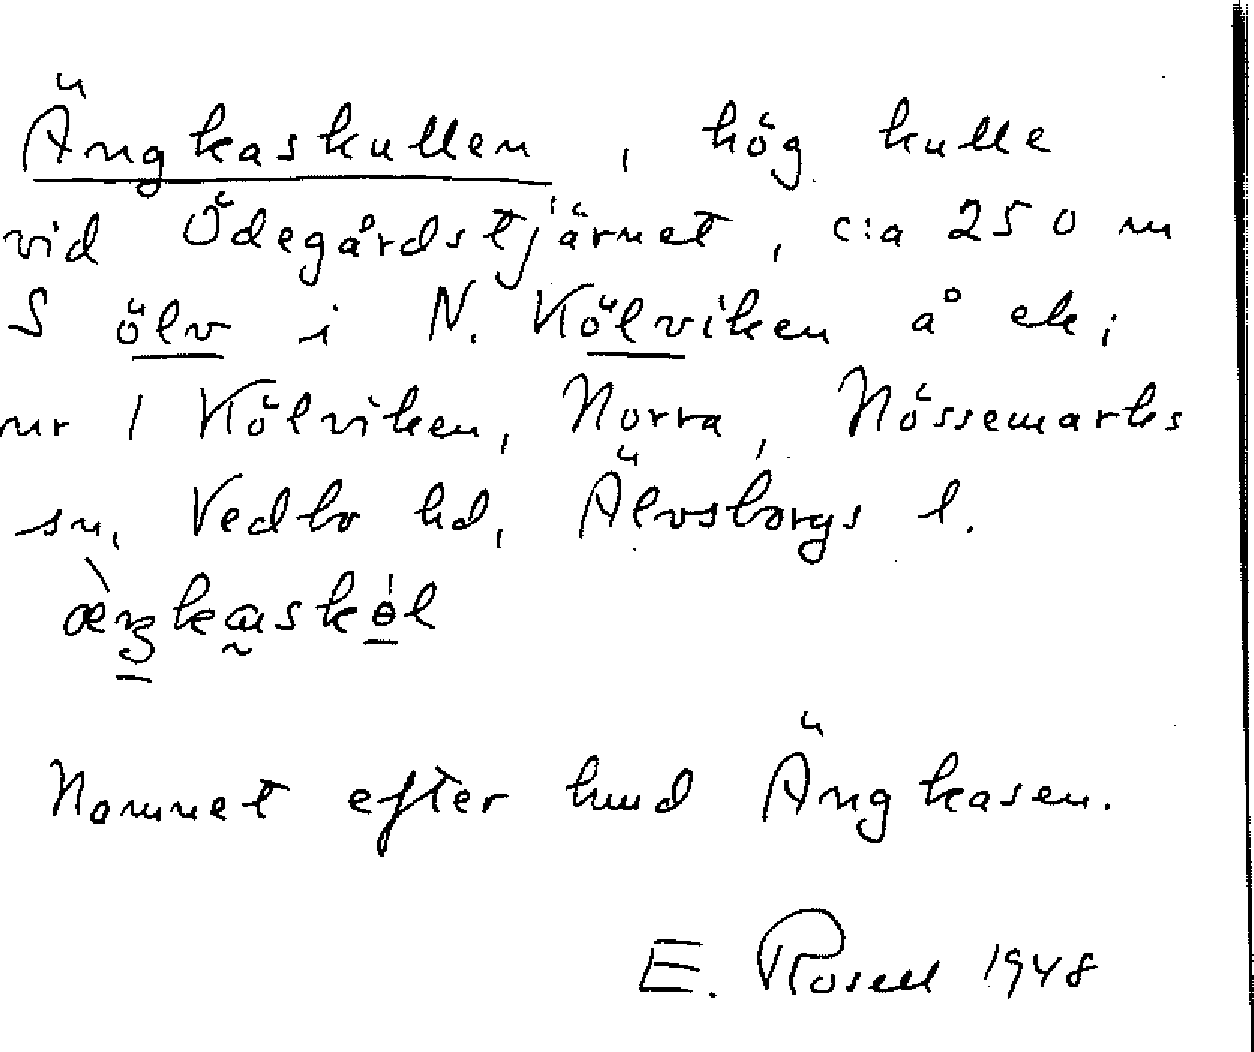 Ängkaskullen, hög kulle
vid Ödegårdstjärnet, c:a 250 m
S ölv i N. Kölviken å ek;
nr 1 Kölviken, Norra, Nössemarks
sn, Vedbo hd, Älvsborgs l.
Namnet efter hmd Ängkasen.
E. Rosell 1948